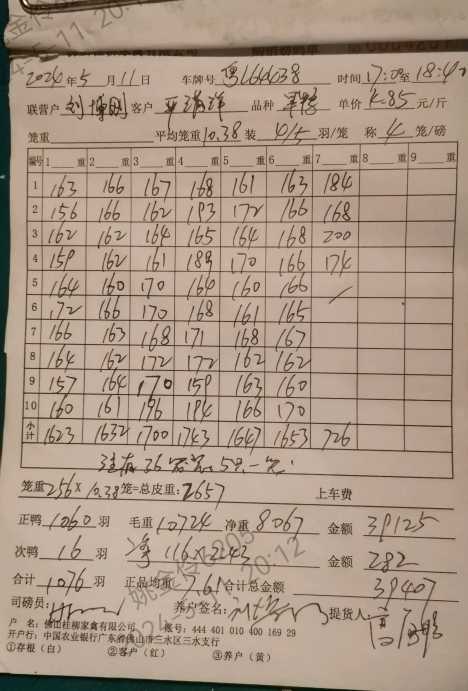 2024年5月11日 车牌号 粤 时间17:00至18:40
联营户 刘 客户 品种 单价 4.85元/斤
笼重 平均笼重10.38装 4/5羽/笼 称 4笼/磅
编号 1 重 2 重 3 重 4 重 5 重 6 重 7 重 8 重 9 重
1 163 166 167 168 161 163 184
2 156 166 162 193 172 166 168
3 162 162 164 165 164 168 200
4 159 162 161 189 170 166 174
5 164 160 170 160 160 166
6 172 166 170 168 161 165
7 166 163 168 171 168 167
8 164 162 172 172 162 162
9 157 164 170 159 163 160
10 160 161 196 184 166 170
小计 1623 1632 1700 1743 1647 1653 726
注有36 5只一笼
笼重256×10.38笼=总皮重:2657 上车费
正鸭 1060羽 毛重10724 净重8067 金额39125
次鸭 16羽 净 116× 金额 282
合计 1076羽 正品均重 7.61 合计总金额 39407
司磅员: 养户签名: 提货人:
户 名:佛山桂柳家禽有限公司 账号:444 401 010 400 169 29
开户行:中国农业银行广东省佛山市三水区三水支行
①存根(白) ②客户(红) ③养户(黄)